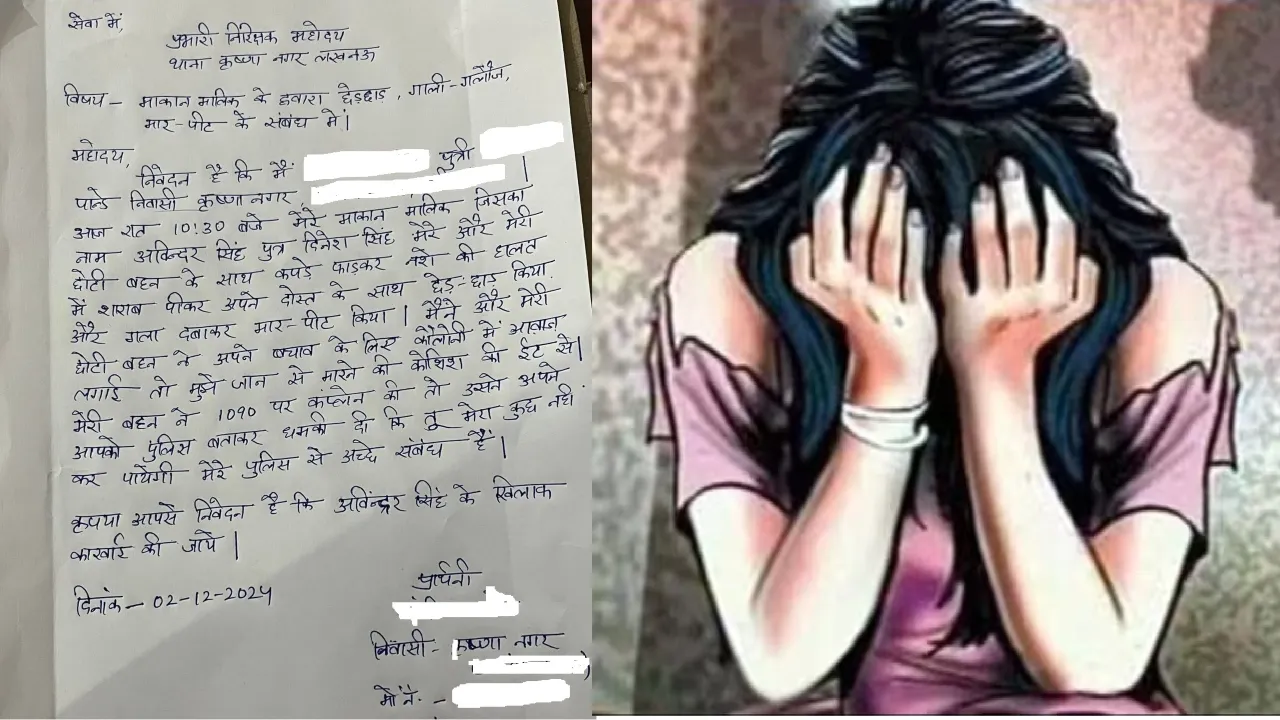 सेवा में,
प्रभारी निरिक्षक महोदय
थाना कृष्णा नगर लखनऊ
विषय - माकान मालिक के द्वारा छेड़छाड़, गाली-गलौज,
मार-पीट के संबंध में।
महोदय,
निवेदन है कि मैं पुत्री
पान्डे निवासी कृष्णा नगर, ।
आज रात 10:30 बजे मेरे माकान मालिक जिसका
नाम अविन्दर सिंह पुत्र दिनेश सिंह मेरे और मेरी
छोटी बहन के साथ कपड़े फाड़कर नशे की हालत
में शराब पीकर अपने दोस्त के साथ छेड़-छाड़ किया
और गला दबाकर मार-पीट किया। मैंने और मेरी
छोटी बहन ने अपने बचाव के लिए कॉलोनी में आवाज
लगाई तो मुझे जान से मारने की कोशिश की ईट से।
मेरी बहन ने 1090 पर कंप्लेन की तो उसने अपने
आपको पुलिस बताकर धमकी दी कि तू मेरा कुछ नही
कर पायेगी मेरे पुलिस से अच्छे संबंध हैं।
कृपया आपसे निवेदन है कि अविन्द्रर सिंह के खिलाफ
कारवाई की जाये।
दिनांक - 02-12-2024
प्रार्थनी
निवासी - कृष्णा नगर
मो नं. -